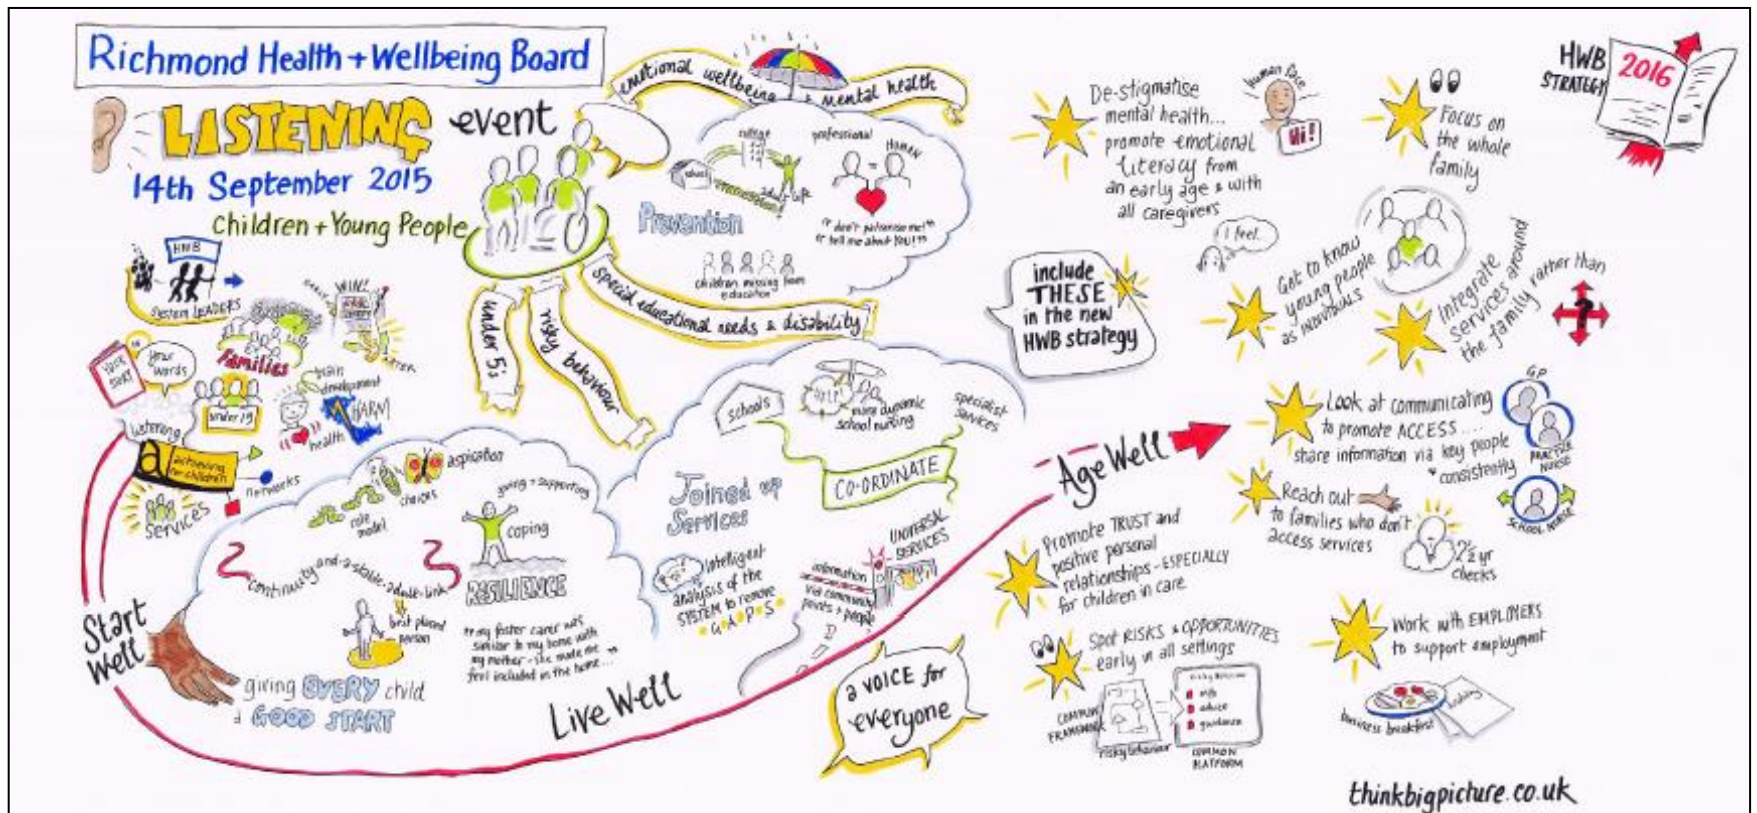 Richmond Health + Wellbeing Board
LISTENING event
14th September 2015
Children + Young People
HWB
System LEADERS
WIN!
Families
YOUR
your
words
under 19
brain
development
HARM
health
listening
achieving
for children
networks
SERVICES
emotional wellbeing & mental health
college
school
adult life
professional
HUMAN
=
Prevention
"don't patronise me!"
"tell me about YOU!"
children missing from
education
special educational needs & disability
risky behaviour
under 5's
aspiration
choices
role
model
giving + supporting
coping
RESILIENCE
continuity and-a-stable-adult-link
best placed
person
"my foster carer was
similar to my home with
my mother - she made me
feel included in the home..."
giving EVERY child
a GOOD START
Start
Well
Live Well
Age Well
schools
HELP!
more dynamic
school nursing
specialist
services
CO-ORDINATE
Joined up
Services
intelligent
analysis of the
SYSTEM to remove
G•A•P•S
UNIVERSAL
SERVICES
information
via community
points + people
a VOICE for
everyone
include
THESE
in the new
HWB strategy
De-stigmatise
mental health...
promote emotional
literacy from
an early age & with
all caregivers
human face
Hi!
I feel..
Focus on
the whole
family
HWB
STRATEGY
2016
Get to know
young people
as INDIVIDUALS
Integrate
services around
the family rather than
?
Look at communicating
to promote ACCESS....
share information via key people
consistently
GP
PRACTICE
NURSE
SCHOOL NURSE
Reach out
to families who don't
access services
2½ yr
checks
Promote TRUST and
positive personal
relationships - ESPECIALLY
for children in care
Spot RISKS & OPPORTUNITIES
early in all settings
COMMON
FRAMEWORK
risky behaviour
risky behaviour
info
advice
guidance
COMMON
PLATFORM
Work with EMPLOYERS
to support employment
business breakfast
thinkbigpicture.co.uk